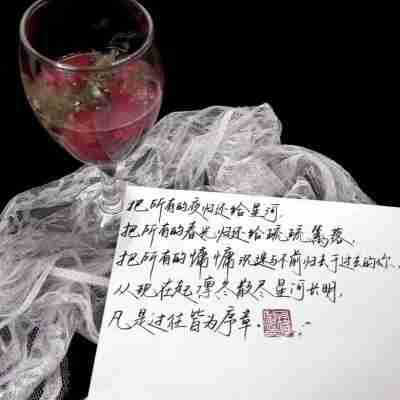 把所有的夜归还给星河,
把所有的春光归还给疏疏篱落,
把所有的慵慵沉迷与不前归于过去的你..
从现在起凛冬散尽星河长明,
凡是过往皆为序章.